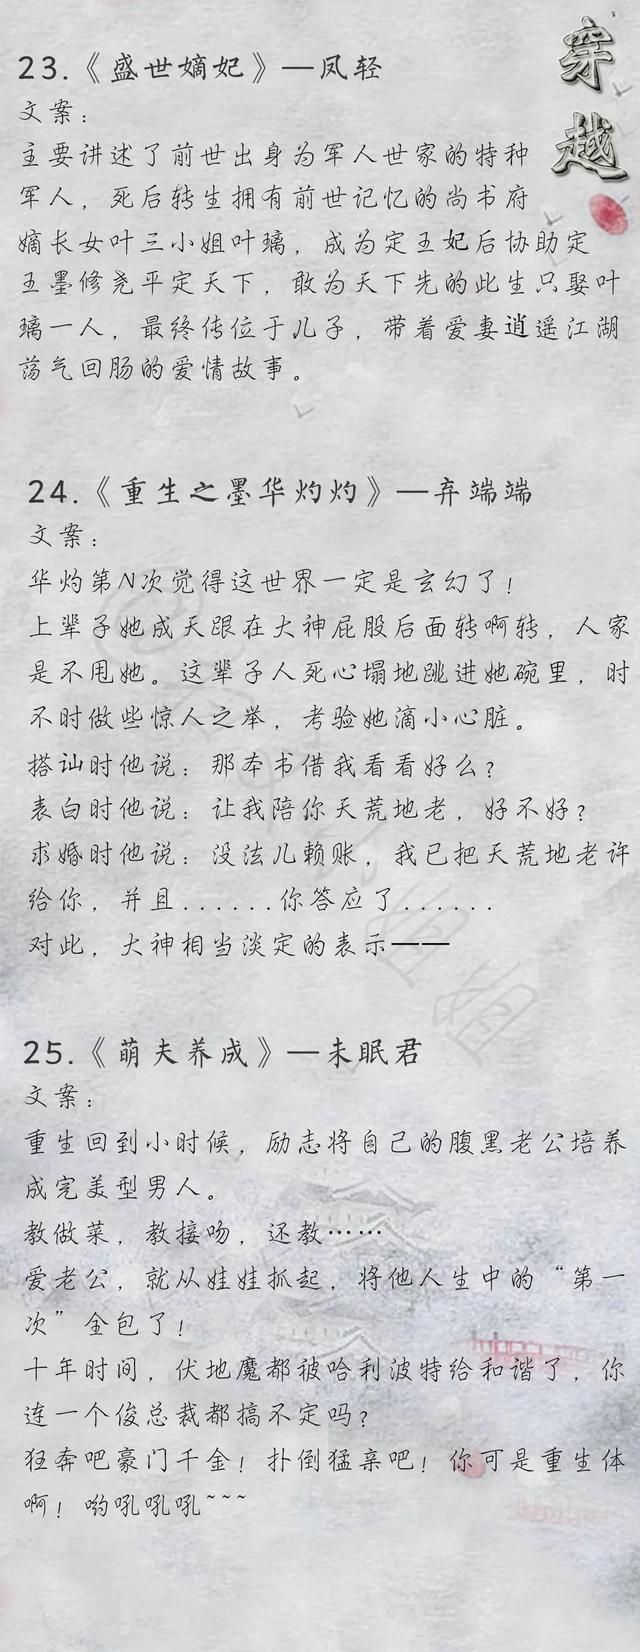 穿越
23.《盛世嫡妃》—凤轻
文案：
主要讲述了前世出身为军人世家的特种
军人，死后转生拥有前世记忆的尚书府
嫡长女叶三小姐叶璃，成为定王妃后协助定
王墨修尧平定天下，敢为天下先的此生只娶叶
璃一人，最终传位于儿子，带着爱妻逍遥江湖
荡气回肠的爱情故事。
24.《重生之墨华灼灼》—弃端端
文案：
华灼第N次觉得这世界一定是玄幻了！
上辈子她成天跟在大神屁股后面转啊转，人家
是不甩她。这辈子人死心塌地跳进她碗里，时
不时做些惊人之举，考验她滴小心脏。
搭讪时他说：那本书借我看看好么？
表白时他说：让我陪你天荒地老，好不好？
求婚时他说：没法儿赖账，我已把天荒地老许
给你，并且......你答应了......
对此，大神相当淡定的表示——
25.《萌夫养成》—未眠君
文案：
重生回到小时候，励志将自己的腹黑老公培养
成完美型男人。
教做菜，教接吻，还教……
爱老公，就从娃娃抓起，将他人生中的“第一
次”全包了！
十年时间，伏地魔都被哈利波特给和谐了，你
连一个俊总裁都搞不定吗？
狂奔吧豪门千金！扑倒猛亲吧！你可是重生体
啊！哟吼吼吼~~~